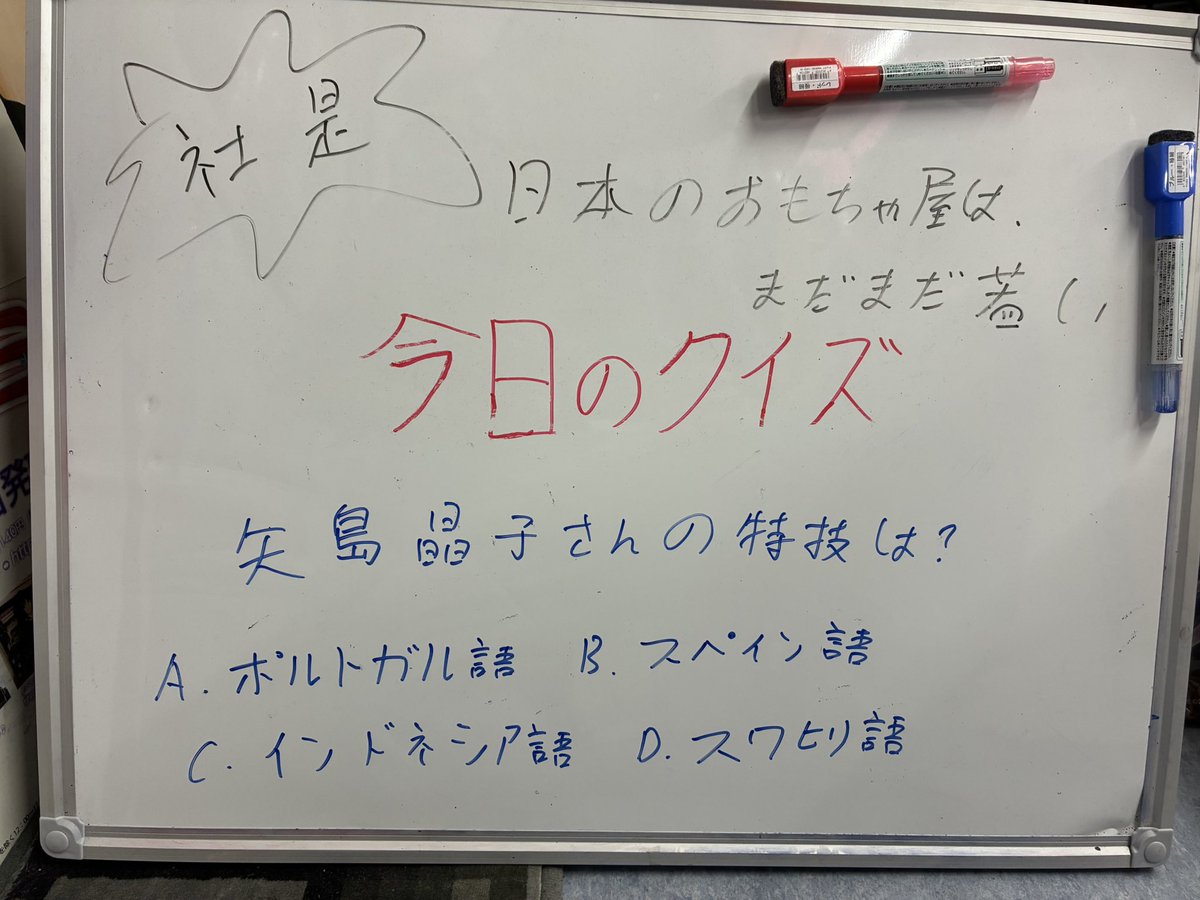 社是
日本のおもちゃ屋は、
まだまだ蓄しい
今日のクイズ
矢島晶子さんの特技は?
A. ポルトガル語 B. スペイン語
C. インドネシア語 D. スワヒリ語
レッド・極細
ブルー・極細